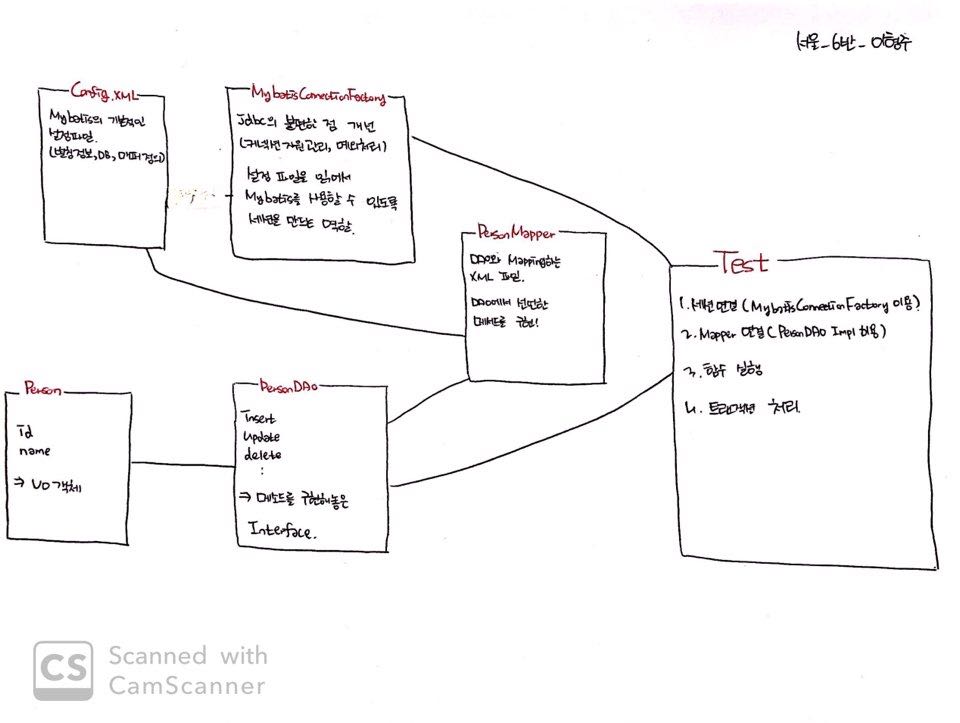 서울_6반_이형주
Config.XML
Mybatis의 개본적인
설정파일.
(변형정보, DB, 매퍼정의)
MybatisConnectionFactory
Jdbc의 불편한 점 개선
(커넥션 자원관리, 예외처리)
설정 파일을 읽어서
Mybatis를 사용할 수 있도록
세션을 만드는 역할.
PersonMapper
DAO와 Mapping하는
XML 파일.
DAO에서 선언한
메서드를 구현!
Test
1. 세션 연결 (MybatisConnectionFactory 이용)
2. Mapper 연결 (PersonDAO Impl 이용)
3. 함수 실행
4. 트랜잭션 처리
Person
Id
name
⇒ VO 객체
PersonDAO
Insert
update
delete
:
⇒ 메소드를 구현해놓은
Interface.
CS
Scanned with
CamScanner